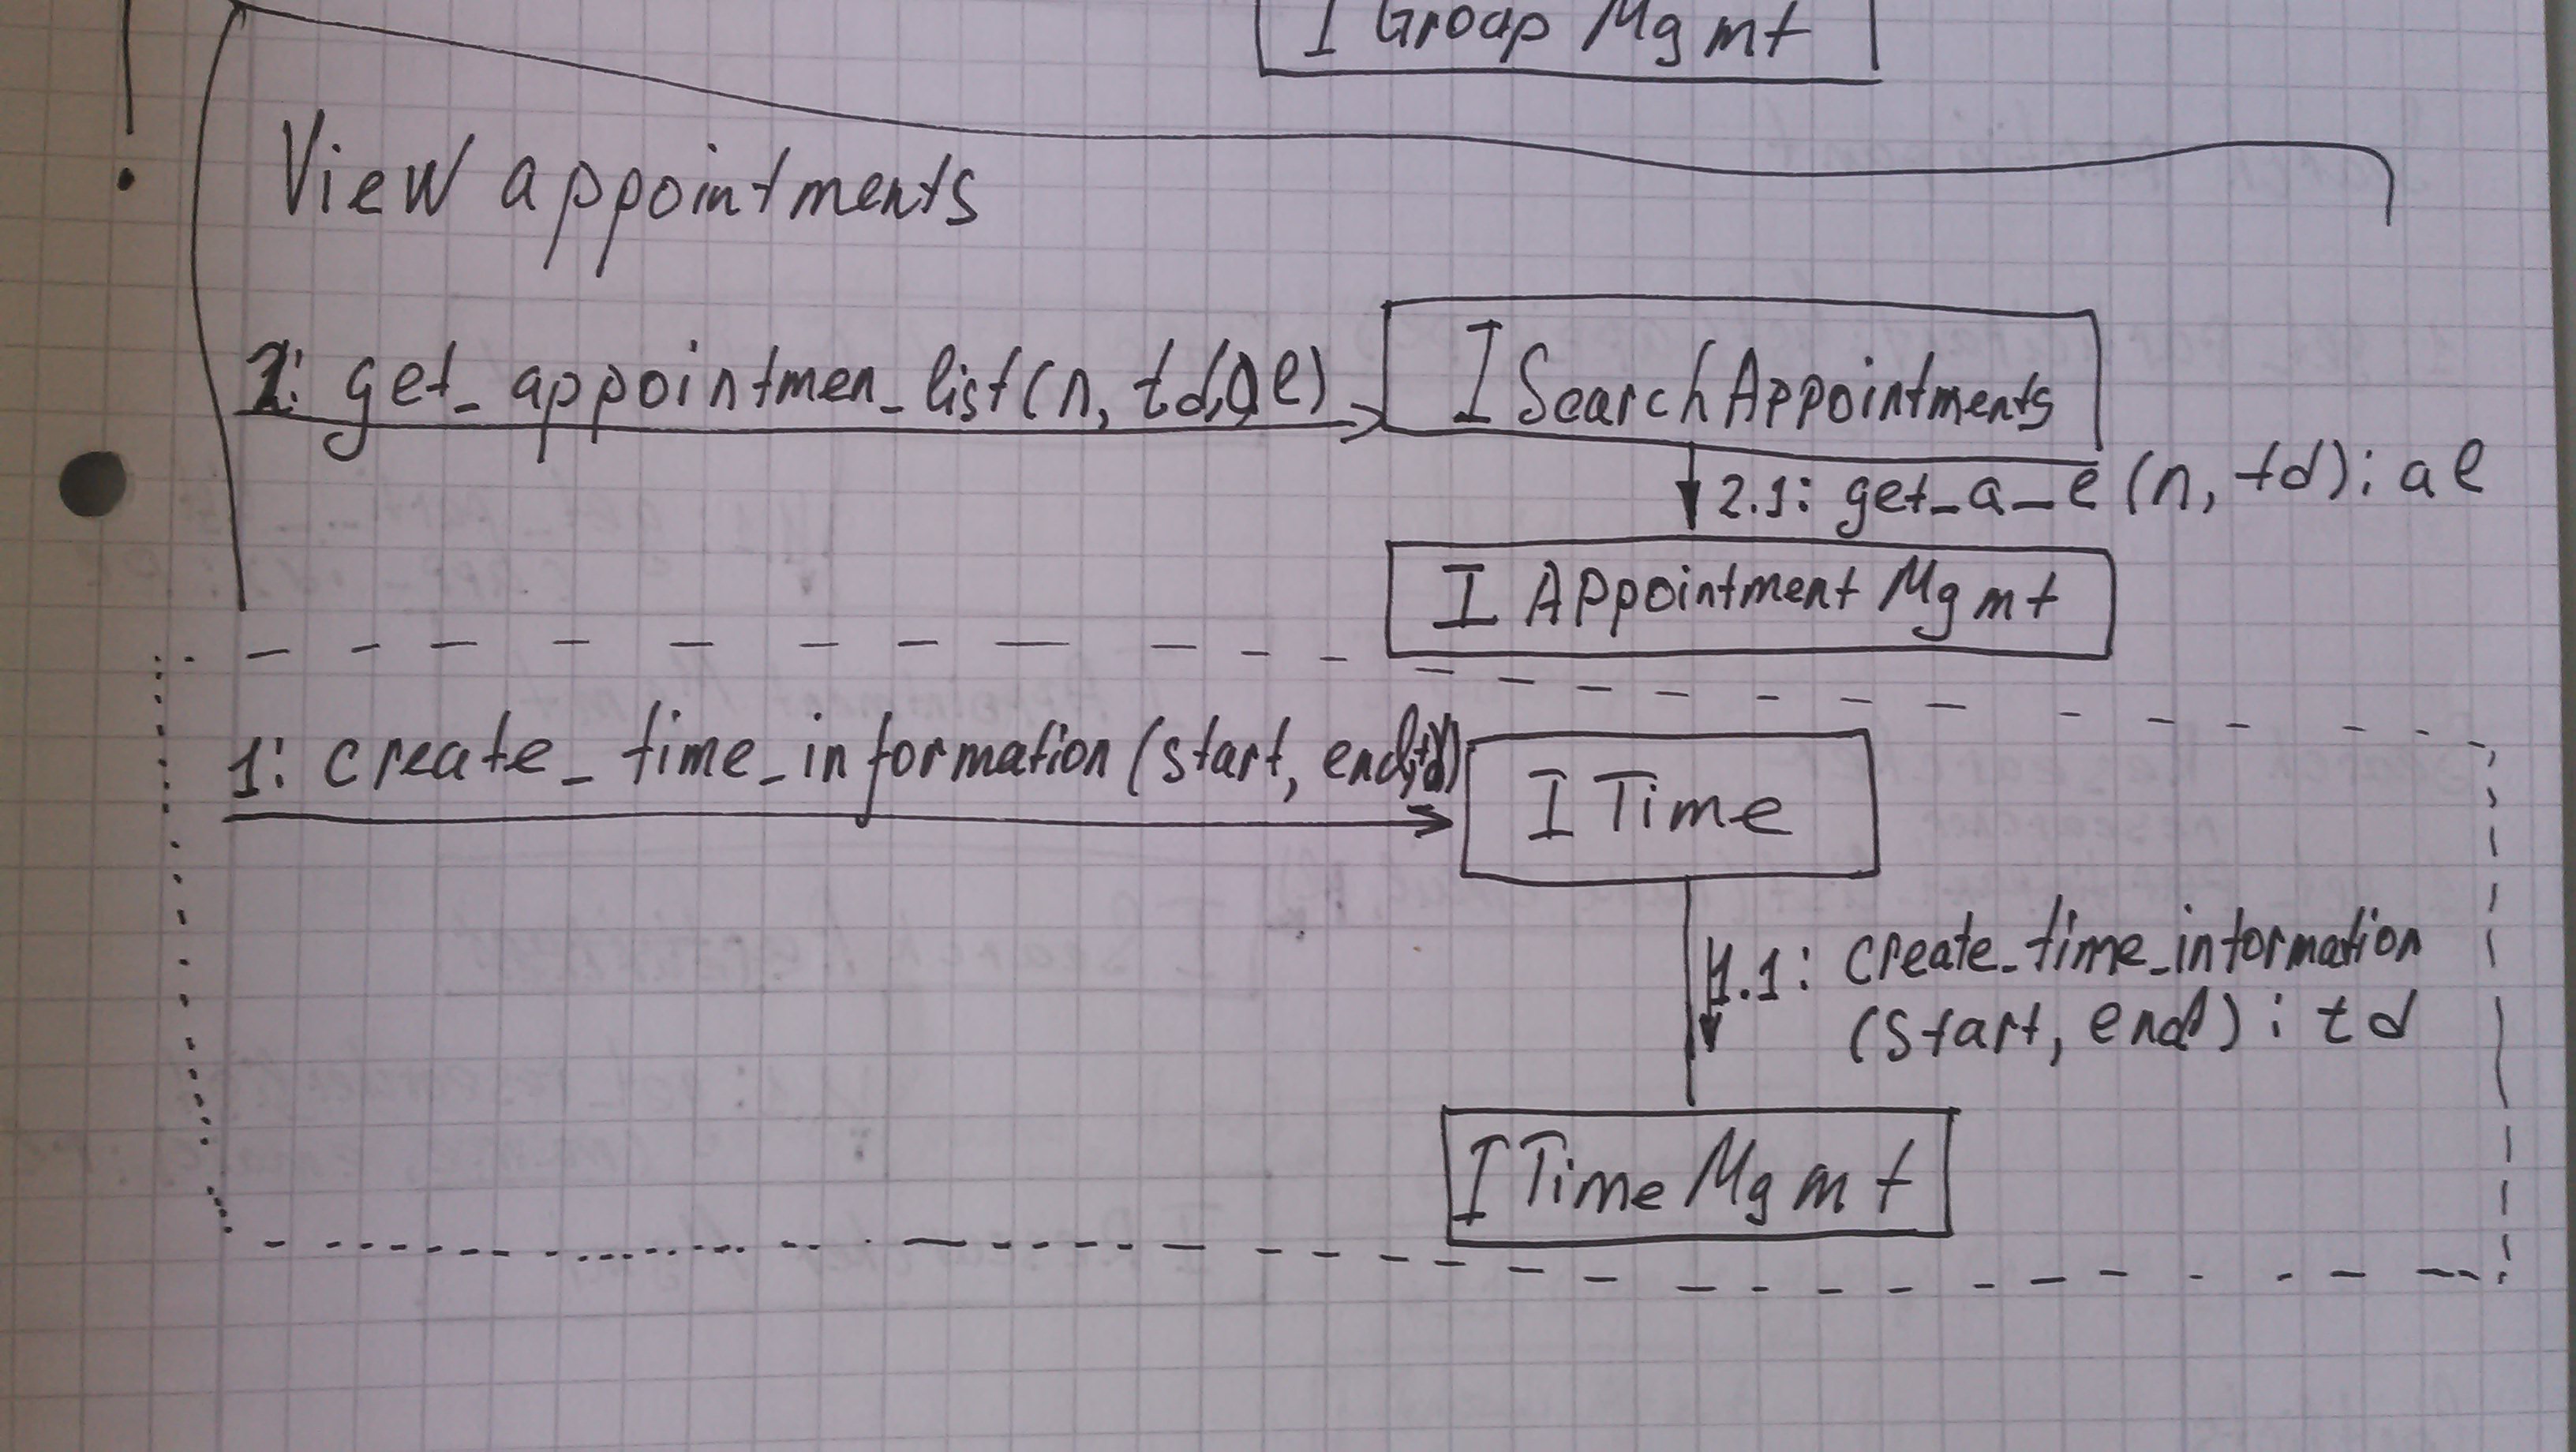 I Group Mgmt
View appointments
2: get_appointmen_list(n, td, al)
I SearchAppointments
2.1: get_a_l (n, td): al
I Appointment Mgmt
1: create_time_information (start, end, td)
I Time
1.1: create_time_information
(start, end): td
I Time Mgmt